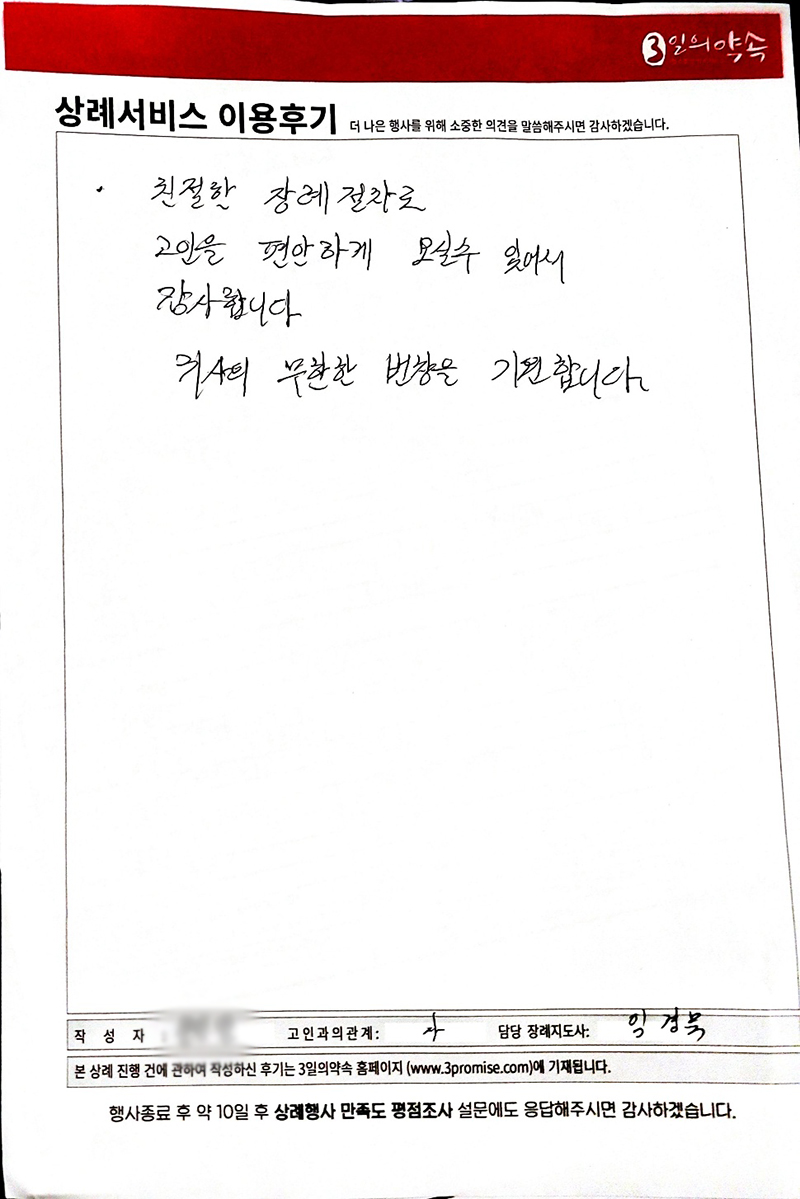 3일의약속
상례서비스 이용후기 더 나은 행사를 위해 소중한 의견을 말씀해주시면 감사하겠습니다.
친절한 장례절차로
고인을 편안하게 모실수 있어서
감사합니다
귀사의 무한한 번창을 기원합니다.
작 성 자 : 고인과의관계: 자 담당 장례지도사: 경묵
본 상례 진행 건에 관하여 작성하신 후기는 3일의약속 홈페이지 (www.3promise.com)에 기재됩니다.
행사종료 후 약 10일 후 상례행사 만족도 평점조사 설문에도 응답해주시면 감사하겠습니다.